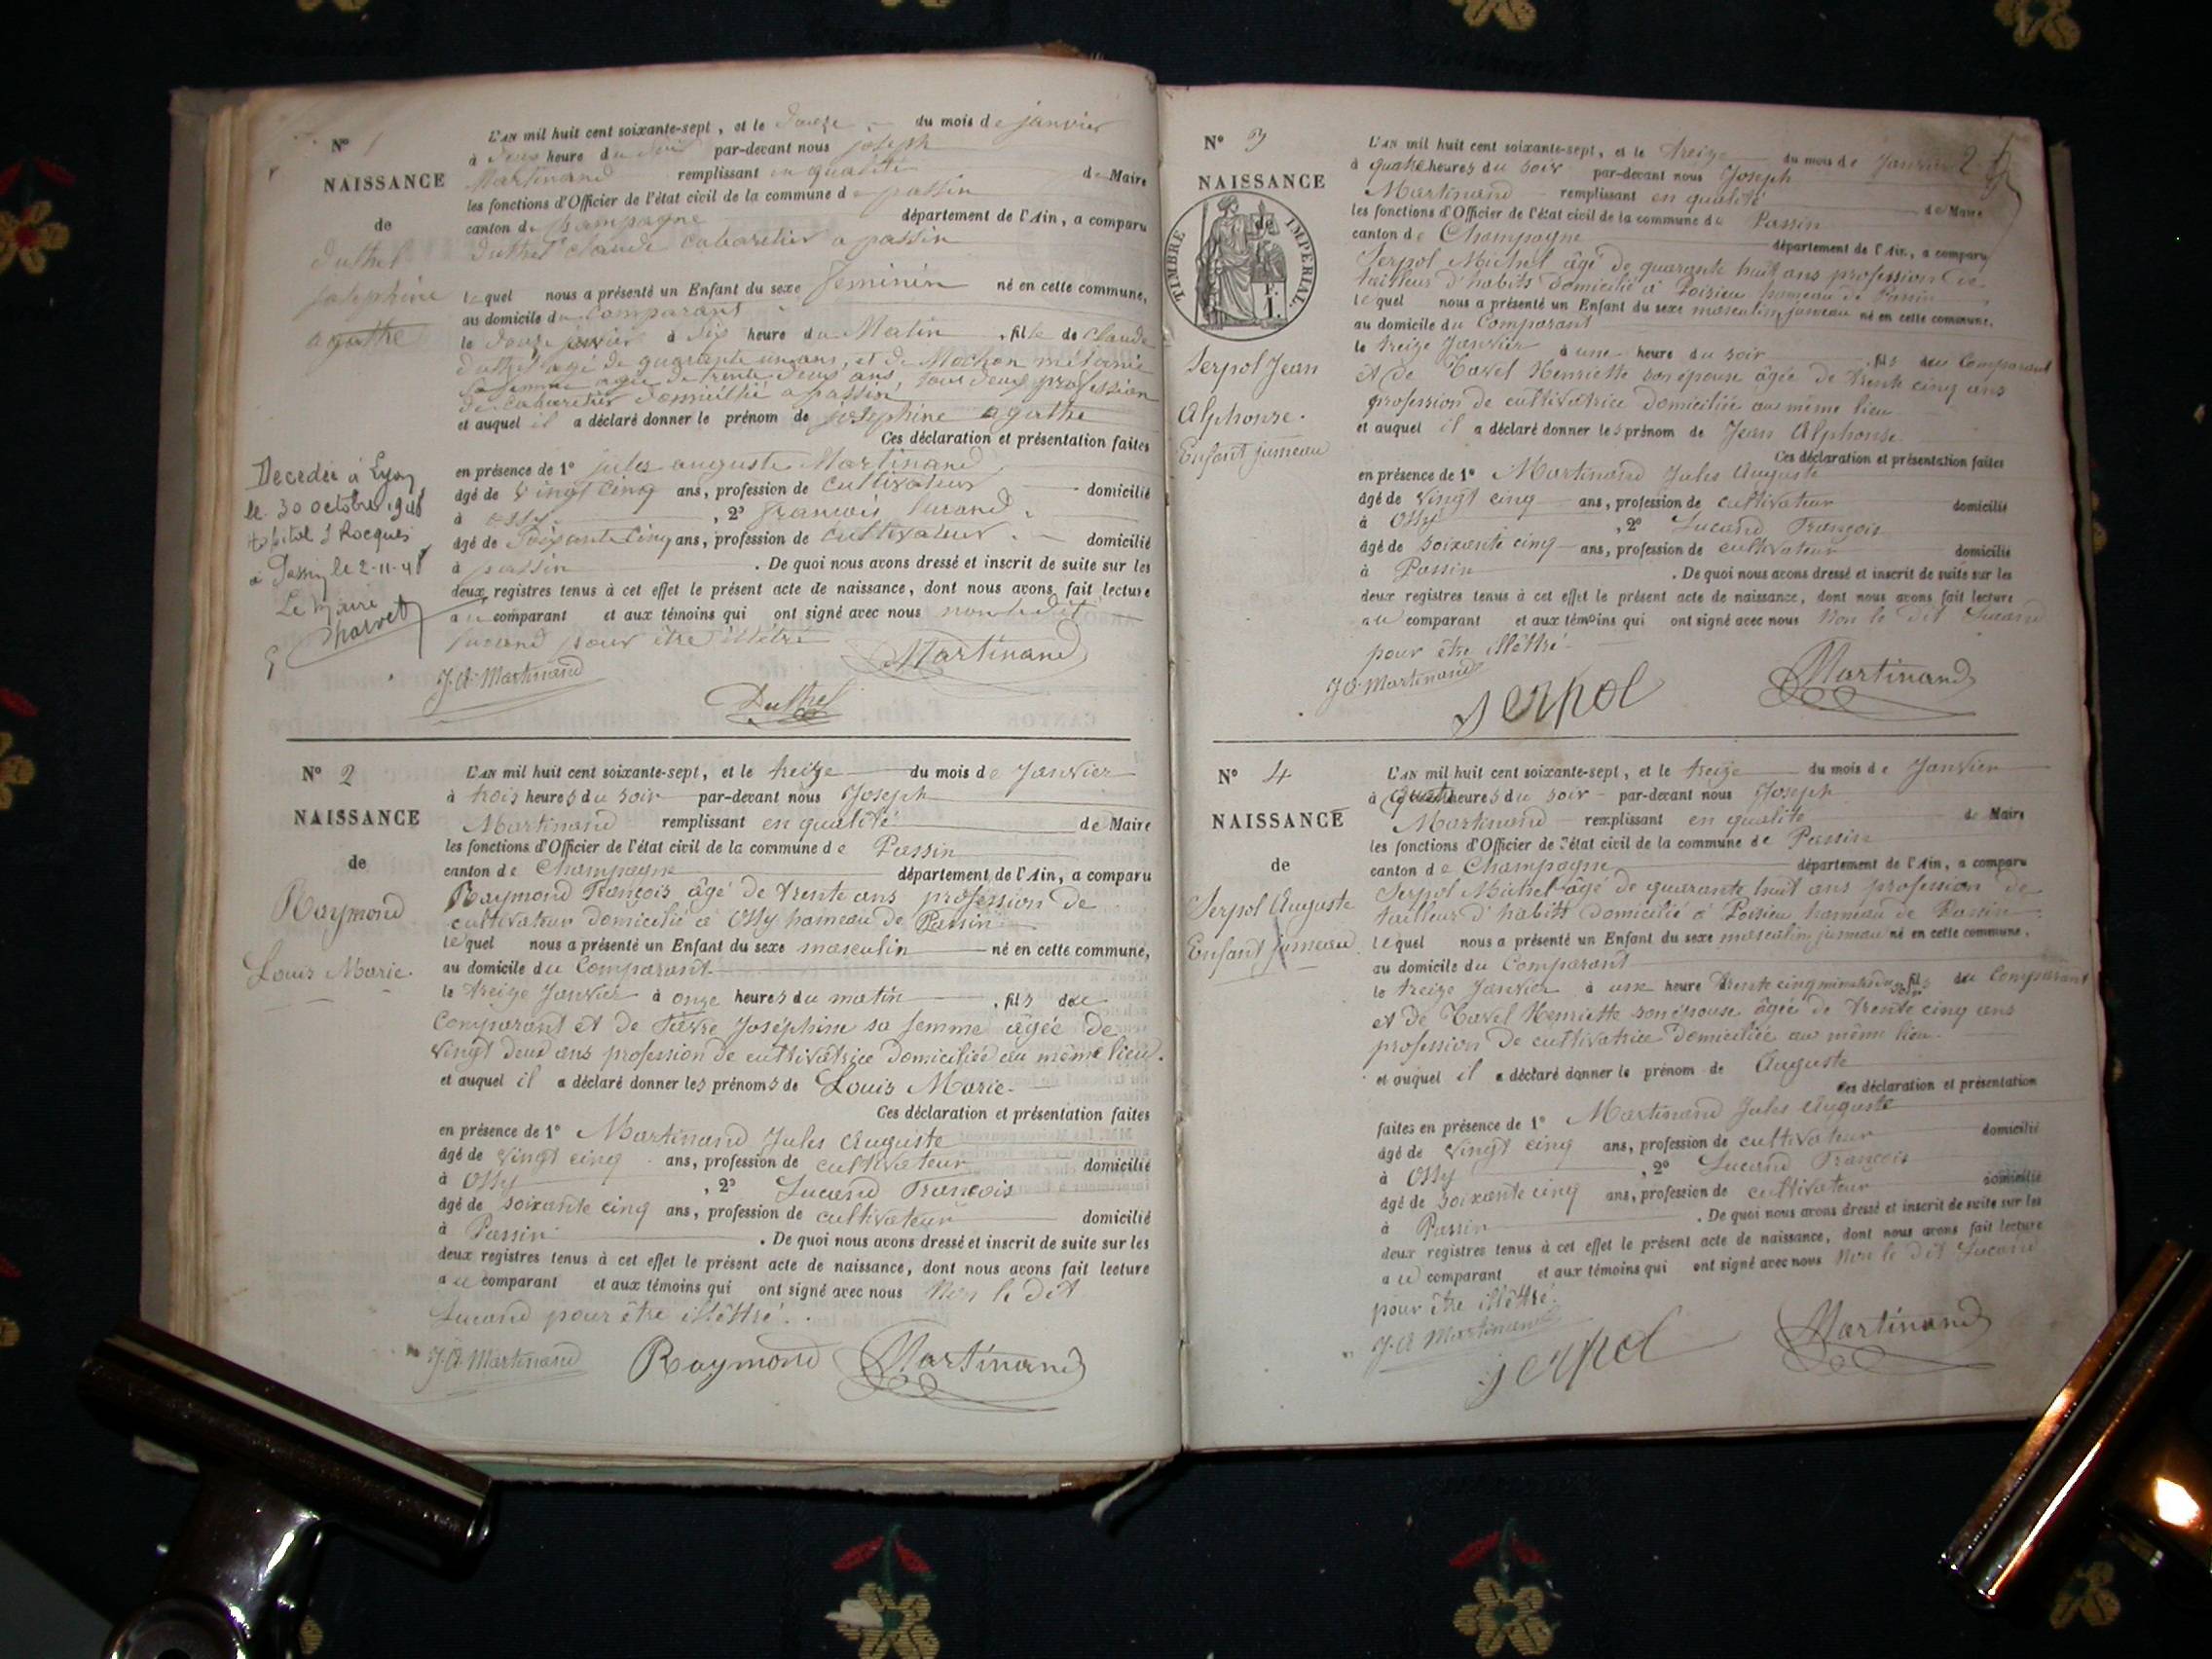 N° 1
NAISSANCE
de
Duthel
Joséphine
agathe
Decedée à Lyon
le 30 octobre 1948
le 2-11-48
Le Maire
L'AN mil huit cent soixante-sept, et le douze du mois de janvier
à deux heure du soir par-devant nous joseph
Martinand remplissant en qualité de Maire
les fonctions d'Officier de l'état civil de la commune de passin
canton de Champagne département de l'Ain, a comparu
Duthel Claude cabaretier a passin
lequel nous a présenté un Enfant du sexe feminin né en cette commune,
au domicile du Comparant
le douze janvier à six heure du Matin, fille de Claude
duthel agé de quarante un ans, et de Mochon mélanie
sa femme agée de trente deux ans, tous deux profession
de cabaretier domicillié a passin
et auquel il a déclaré donner le prénom de joséphine agathe
Ces déclaration et présentation faites
en présence de 1° jules auguste Martinand
âgé de vingt cinq ans, profession de cultivateur domicilié
à ossy, 2° francois lucand
âgé de Soixante Cinq ans, profession de cultivateur domicilié
à passin. De quoi nous avons dressé et inscrit de suite sur les
deux registres tenus à cet effet le présent acte de naissance, dont nous avons fait lecture
au comparant et aux témoins qui ont signé avec nous non ledit
lucand pour être illétré
J. A. Martinand Duthel Martinand
N° 2
NAISSANCE
de
Raymond
Louis Marie.
L'AN mil huit cent soixante-sept, et le treize du mois de Janvier
à trois heures du soir par-devant nous Joseph
Martinand remplissant en qualité de Maire
les fonctions d'Officier de l'état civil de la commune de Passin
canton de Champagne département de l'Ain, a comparu
Raymond François âgé de trente ans profession de
cultivateur domicilié à Ossy hameau de Passin
lequel nous a présenté un Enfant du sexe masculin né en cette commune,
au domicile du Comparant
le treize Janvier à onze heures du matin, fils du
Comparant et de Favre Joséphine sa femme âgée de
vingt deux ans profession de cultivatrice domiciliée au même lieu.
et auquel il a déclaré donner les prénoms de Louis Marie.
Ces déclaration et présentation faites
en présence de 1° Martinand Jules Auguste
âgé de vingt cinq ans, profession de cultivateur domicilié
à Ossy, 2° Lucand François
âgé de soixante cinq ans, profession de cultivateur domicilié
à Passin. De quoi nous avons dressé et inscrit de suite sur les
deux registres tenus à cet effet le présent acte de naissance, dont nous avons fait lecture
au comparant et aux témoins qui ont signé avec nous Non le dit
Lucand pour être illêttré.
J. A Martinand Raymond Martinand
N° 3
NAISSANCE
de
TIMBRE IMPÉRIAL.
Serpol Jean
Alphonse.
Enfant jumeau
L'AN mil huit cent soixante-sept, et le treize du mois de Janvier 2
à quatre heures du soir par-devant nous Joseph
Martinand remplissant en qualité de Maire
les fonctions d'Officier de l'état civil de la commune de Passin
canton de Champagne département de l'Ain, a comparu
Serpol Michel âgé de quarante huit ans profession de
tailleur d'habits domicilié à Poisieu hameau de Passin
lequel nous a présenté un Enfant du sexe masculin jumeau né en cette commune,
au domicile du Comparant
le treize Janvier à une heure du soir, fils du Comparant
et de Tavel Henriette son épouse âgée de trente cinq ans
profession de cultivatrice domiciliée au même lieu
et auquel il a déclaré donner les prénom de Jean Alphonse
Ces déclaration et présentation faites
en présence de 1° Martinand Jules Auguste
âgé de vingt cinq ans, profession de cultivateur domicilié
à Ossy, 2° Lucand François
âgé de soixante cinq ans, profession de cultivateur domicilié
à Passin. De quoi nous avons dressé et inscrit de suite sur les
deux registres tenus à cet effet le présent acte de naissance, dont nous avons fait lecture
au comparant et aux témoins qui ont signé avec nous Non le dit Lucand
pour être illêttré.
J A Martinand Serpol Martinand
N° 4
NAISSANCE
de
Serpol Auguste
Enfant jumeau
L'AN mil huit cent soixante-sept, et le treize du mois de Janvier
à quatre heures du soir par-devant nous Joseph
Martinand remplissant en qualité de Maire
les fonctions d'Officier de l'état civil de la commune de Passin
canton de Champagne département de l'Ain, a comparu
Serpol Michel âgé de quarante huit ans profession de
tailleur d'habits domicilié à Poisieu hameau de Passin
lequel nous a présenté un Enfant du sexe masculin jumeau né en cette commune,
au domicile du Comparant
le treize Janvier à une heure trente cinq minutes du soir fils du Comparant
et de Tavel Henriette son épouse âgée de trente cinq ans
profession de cultivatrice domiciliée au même lieu
et auquel il a déclaré donner le prénom de Auguste
Ces déclaration et présentation
faites en présence de 1° Martinand Jules Auguste
âgé de vingt cinq ans, profession de cultivateur domicilié
à Ossy, 2° Lucand François
âgé de soixante cinq ans, profession de cultivateur domicilié
à Passin. De quoi nous avons dressé et inscrit de suite sur les
deux registres tenus à cet effet le présent acte de naissance, dont nous avons fait lecture
au comparant et aux témoins qui ont signé avec nous Non le dit Lucand
pour être illêttré.
J. A Martinand Serpol Martinand